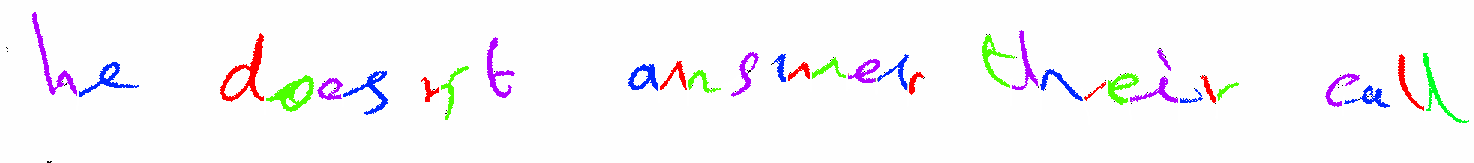 he doesn't answer their call